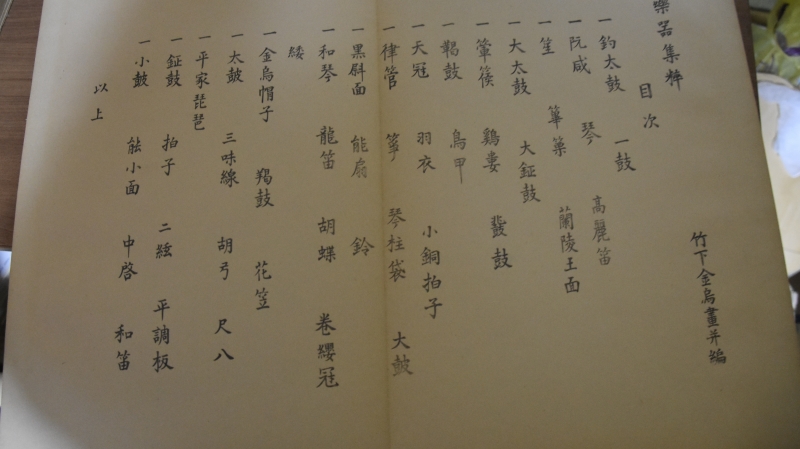 樂器集粹
目次
竹下金烏畫并編
一 釣太鼓 一鼓
一 阮咸 琴 高麗笛
一 笙 篳篥 蘭陵王面
一 大太鼓 大鉦鼓
一 箜篌 鷄婁 鼗鼓
一 鞨鼓 鳥甲
一 天冠 羽衣 小銅拍子
一 律管 箏 琴柱袋 大鼓
一 黒尉面 能扇 鈴
一 和琴 龍笛 胡蝶 卷纓冠
緌
一 金烏帽子 羯鼓 花笠
一 太鼓 三味線 胡弓 尺八
一 平家琵琶
一 鉦鼓 拍子 二絃 平調板
一 小鼓 能小面 中啓 和笛
以上